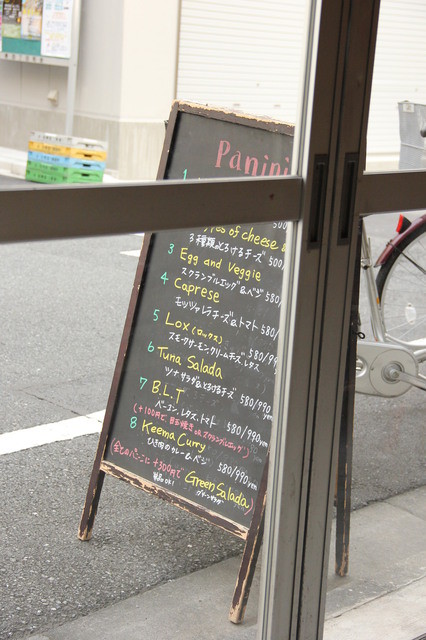 Panini
1
ies of cheese
3種類のとろけるチーズ 500/
3 Egg and Veggie
スクランブルエッグ&ベジ 580/
4 Caprese
モッツァレラチーズ&トマト 580/
5 Lox(ロックス)
スモークサーモン,クリームチーズ,レタス 580/99
6 Tuna Salada
ツナサラダ&とろけるチーズ 580/990
7 B.L.T
ベーコン,レタス,トマト 580/990yen
(+100円で、目玉焼き orスクランブルエッグ)
8 Keema Curry
ひき肉のカレー&ベジ 580/990yen
(全てのパニーニに+300円で GreenSalada)
グリーンサラダ